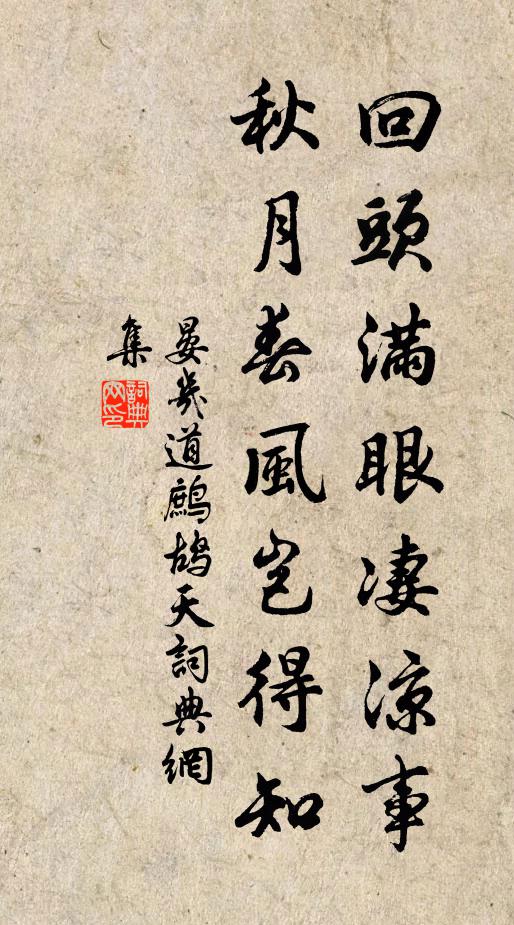 回頭滿眼凄涼事
秋月春風豈得知
晏幾道鷓鴣天詞典網
集
詞典網印